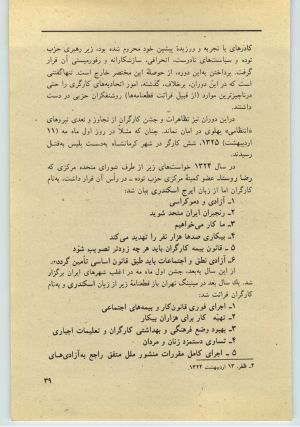 کادرهای با تجربه و ورزیدهٔ پیشین خود محروم شده بود، زیر رهبری حزب
توده و سیاست‌های نادرست، انحرافی، سازشکارانه و رفورمیستی آن قرار
گرفت. پرداختن به‌این دوره، از حوصلهٔ این مختصر خارج است. تنهاگفتنی
است که در این دوران، برخلاف گذشته، امور اتحادیه‌های کارگری را حتی
درناچیزترین موارد (از قبیل قرائت قطعنامه‌ها) روشنفکران حزبی در دست
داشتند.
دراین دوران نیز تظاهرات و جشن کارگران از تجاوز و تعدی نیروهای
«انتظامی» پهلوی در امان نماند. چنان که مثلاً در روز اول ماه مه (۱۱
اردیبهشت) ۱۳۲۵، شش کارگر در شهر کرمانشاه به‌دست پلیس به‌قتل
رسیدند.
در سال ۱۳۲۴ خواست‌های زیر از طرف شورای متحده مرکزی که
رضا روستا، عضو کمیتهٔ مرکزی حزب توده ـ در رأس آن قرار داشت، به‌نام
کارگران اما از زبان ایرج اسکندری بیان شد:
۱ـ آزادی و دموکراسی
۲ـ رنجبران ایران متحد شوید
۳ـ ما کار می‌خواهیم
۴ـ بیکاری صدها هزار نفر را تهدید می‌کند
۵ ـ قانون بیمه کارگران باید هر چه زودتر تصویب شود
۶ـ آزادی نطق و اجتماعات باید طبق قانون اساسی تأمین گردد۲».
از این سال به‌بعد، جشن اول ماه مه در اغلب شهرهای ایران برگزار
می‌شد. یک سال بعد در میتینگ تهران باز قطعنامهٔ زیر از زبان اسکندری و به‌نام
کارگران قرائت شد:
۱ـ اجرای فوری قانون‌کار و بیمه‌های اجتماعی
۲ـ تهیهٔ کار برای هزاران بیکار
۳ـ بهبود وضع فرهنگی و بهداشتی کارگران و تعلیمات اجباری
۴ـ تساوی دستمزد زنان و مردان
۵ ـ اجرای کامل مقررات منشور ملل متفق راجع به‌آزادی‌های
۲ـ ظفر، ۱۳ اردیبهشت ۱۳۲۴.
۳۹